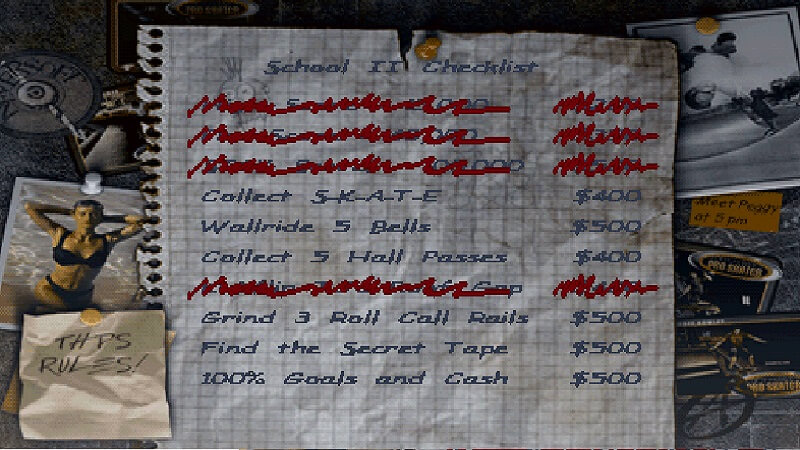 School II Checklist
Collect S-K-A-T-E $400
Wallride 5 Bells $500
Collect 5 Hall Passes $400
Gap
Grind 3 Roll Call Rails $500
Find the Secret Tape $500
100% Goals and Cash $500
Meet Peggy
at 5 pm
PRO SKATER
THPS
RULES!